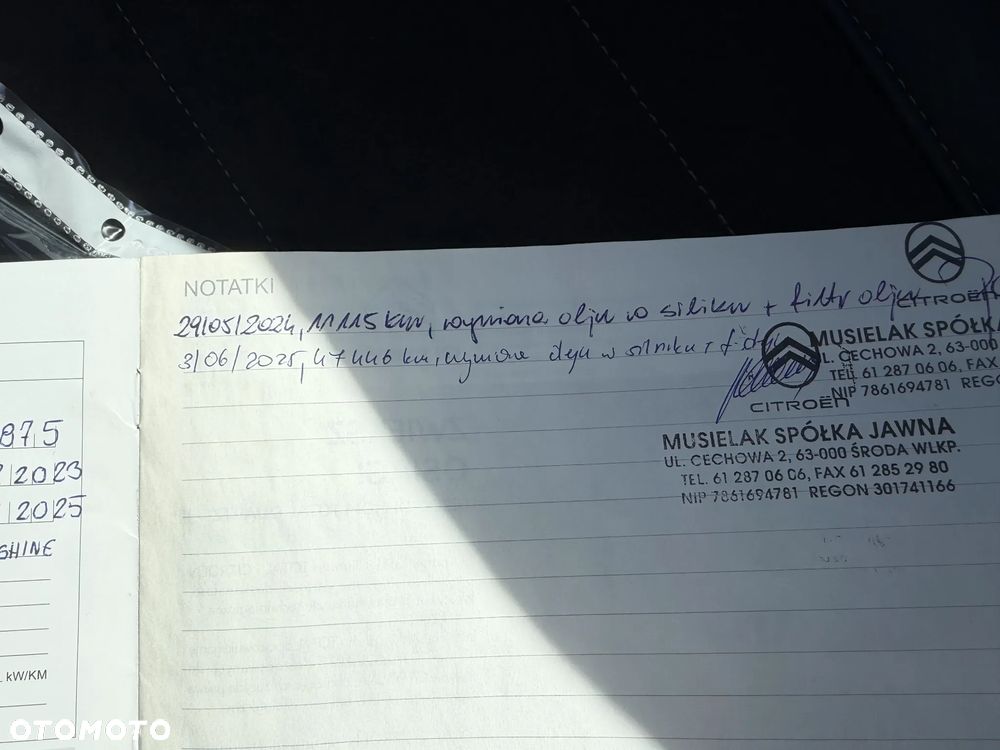 NOTATKI
29/05/2024, 11115 km, wymiana oleju w silniku + filtr oleju
3/06/2025, 47446 km, wymiana oleju w silniku + filtr
CITROËN
MUSIELAK SPÓŁKA
UL. CECHOWA 2, 63-000
TEL. 61 287 06 06, FAX
NIP 7861694781 REGO
CITROËN
MUSIELAK SPÓŁKA JAWNA
UL. CECHOWA 2, 63-000 ŚRODA WLKP.
TEL. 61 287 06 06, FAX 61 285 29 80
NIP 7861694781 REGON 301741166
87,5
2023
2025
SHINE
kW/KM
OTOMOTO